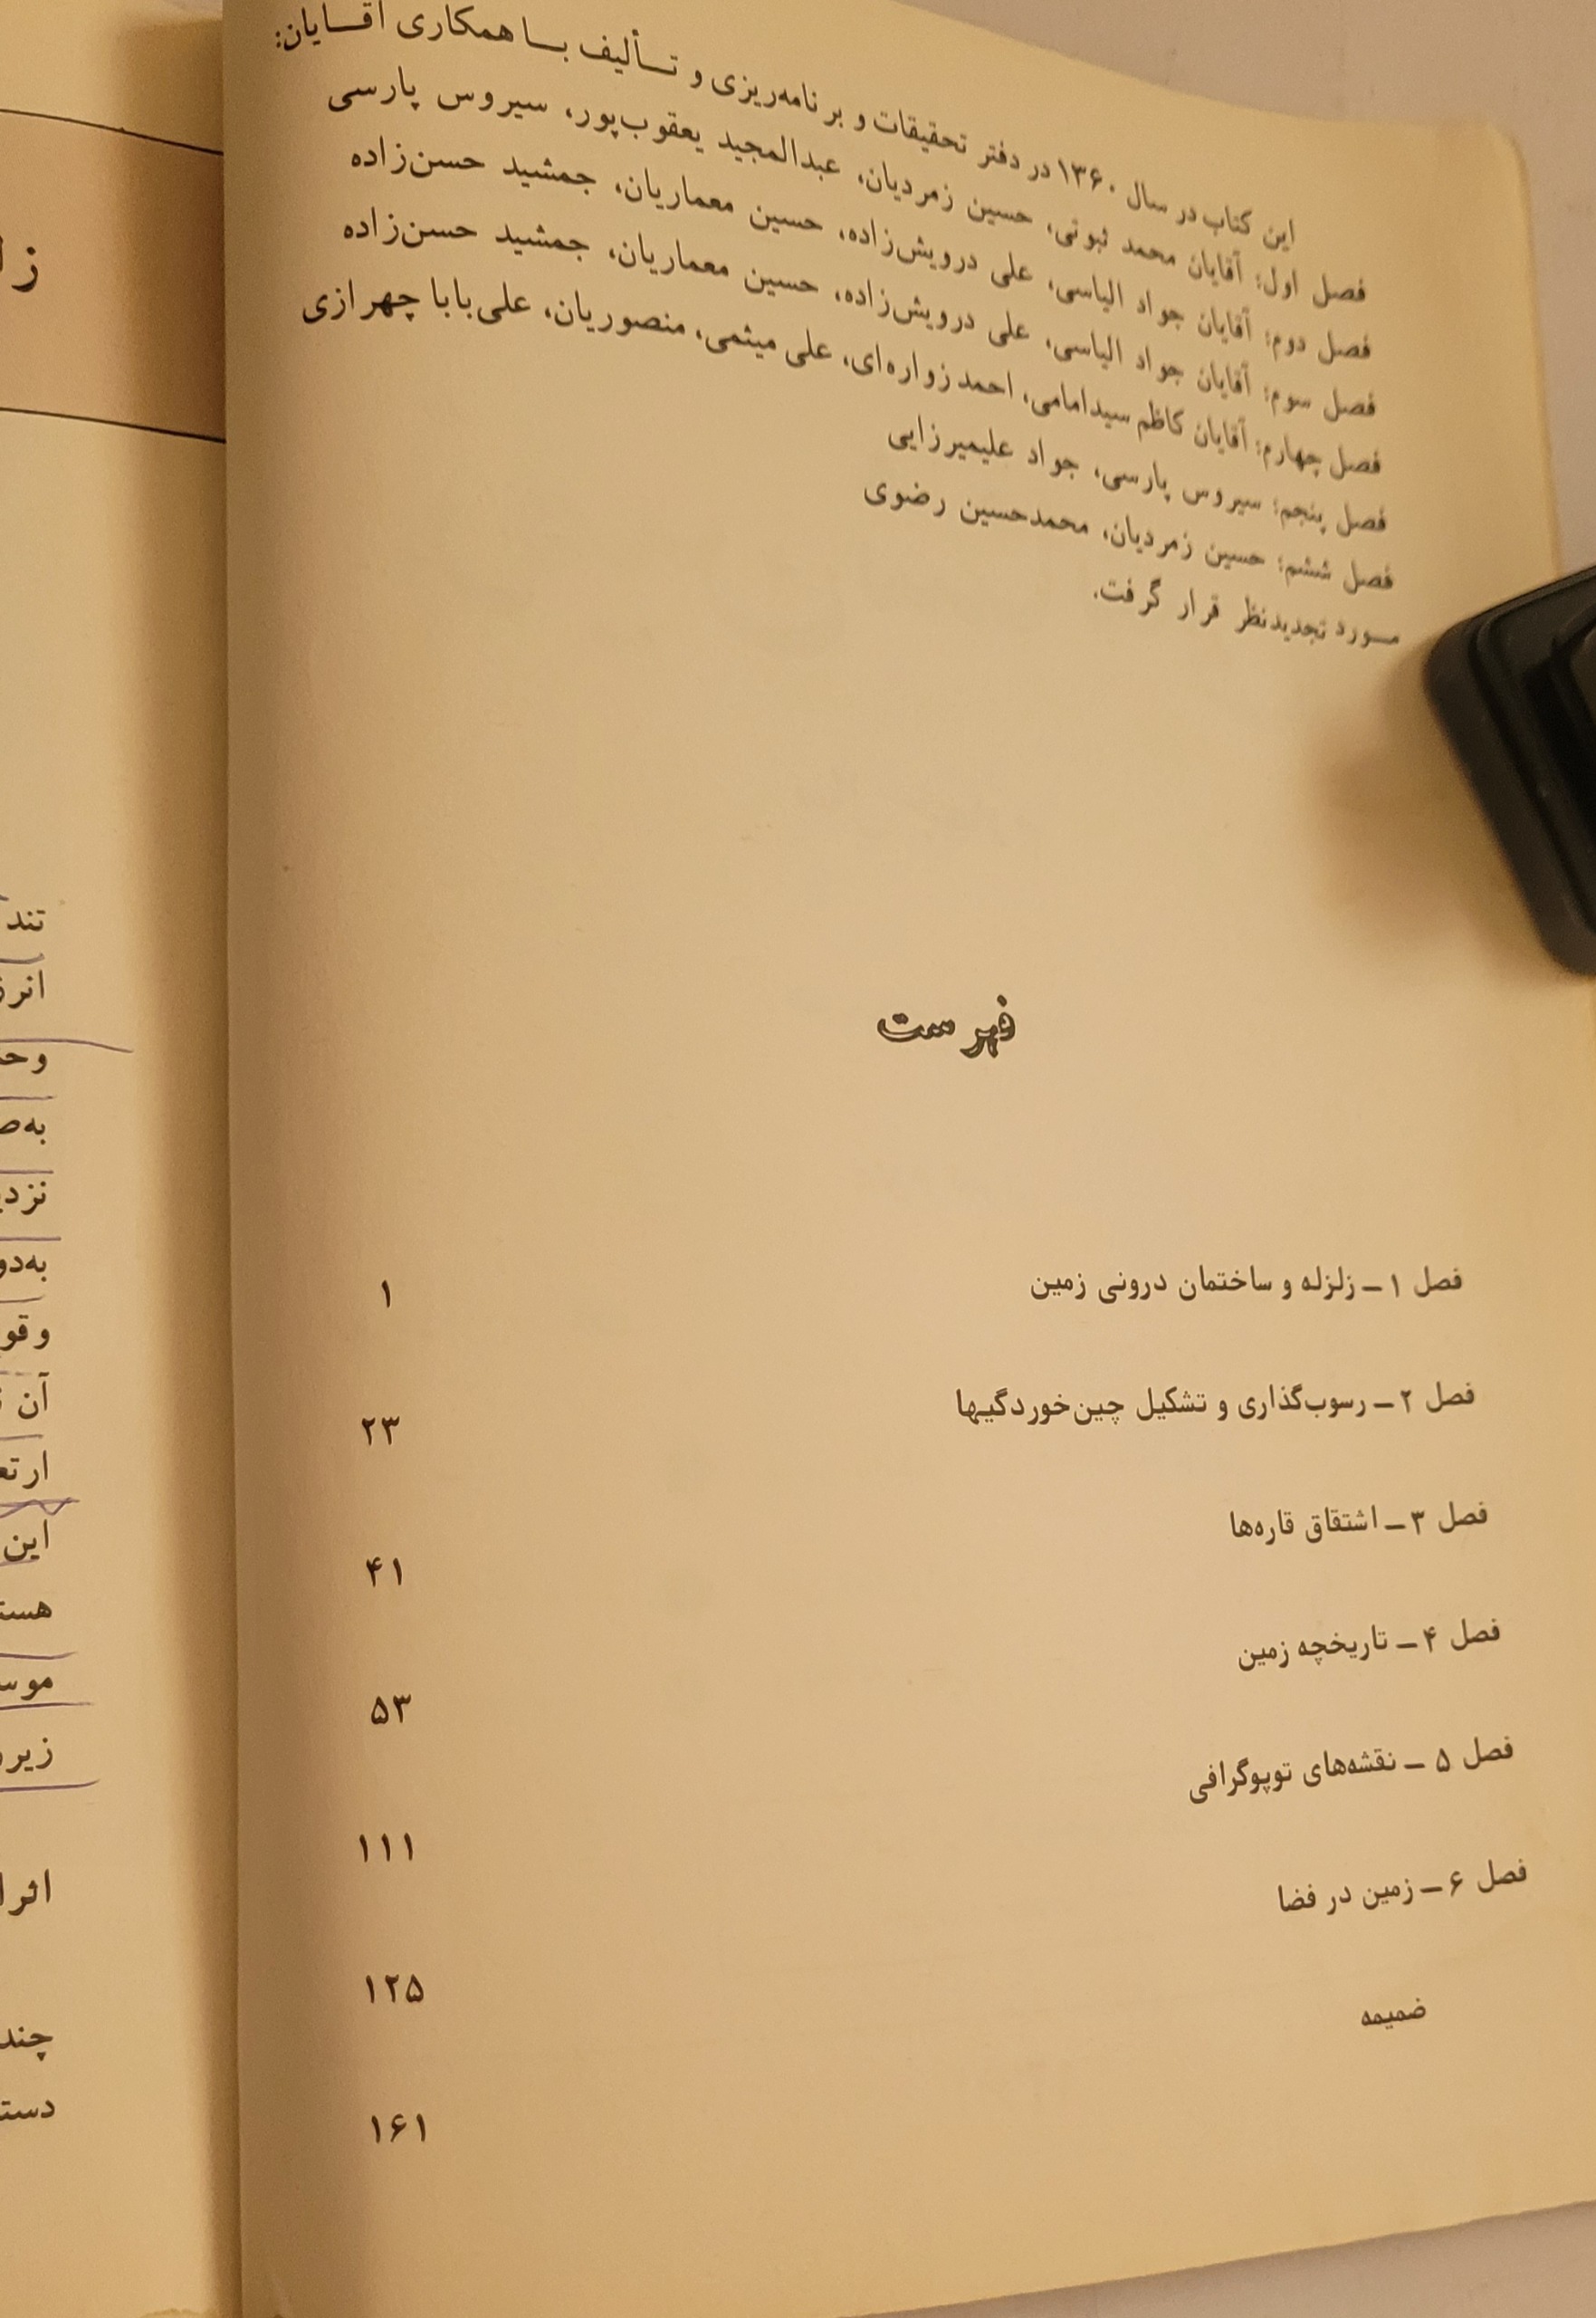 این کتاب در سال ۱۳۶۰ در دفتر تحقیقات و برنامه‌ریزی و تـــألیف بـــا همکاری آقـــایان:
فصل اول: آقایان محمد ثبوتی، حسین زمردیان، عبدالمجید یعقوب‌پور، سیروس پارسی
فصل دوم: آقایان جواد الیاسی، علی درویش‌زاده، حسین معماریان، جمشید حسن‌زاده
فصل سوم: آقایان جواد الیاسی، علی درویش‌زاده، حسین معماریان، جمشید حسن‌زاده
فصل چهارم: آقایان کاظم سیدامامی، احمد زواره‌ای، علی میثمی، منصوریان، علی‌بابا چهرازی
فصل پنجم: سیروس پارسی، جواد علیمیرزایی
فصل ششم: حسین زمردیان، محمدحسین رضوی
مـــورد تجدیدنظر قرار گرفت.
فهرست
فصل ۱ ــ زلزله و ساختمان درونی زمین ۱
فصل ۲ ــ رسوب‌گذاری و تشکیل چین‌خوردگیها ۲۳
فصل ۳ ــ اشتقاق قاره‌ها ۴۱
فصل ۴ ــ تاریخچه زمین ۵۳
فصل ۵ ــ نقشه‌های توپوگرافی ۱۱۱
فصل ۶ ــ زمین در فضا ۱۲۵
ضمیمه ۱۶۱
تند
وقو
آن
این